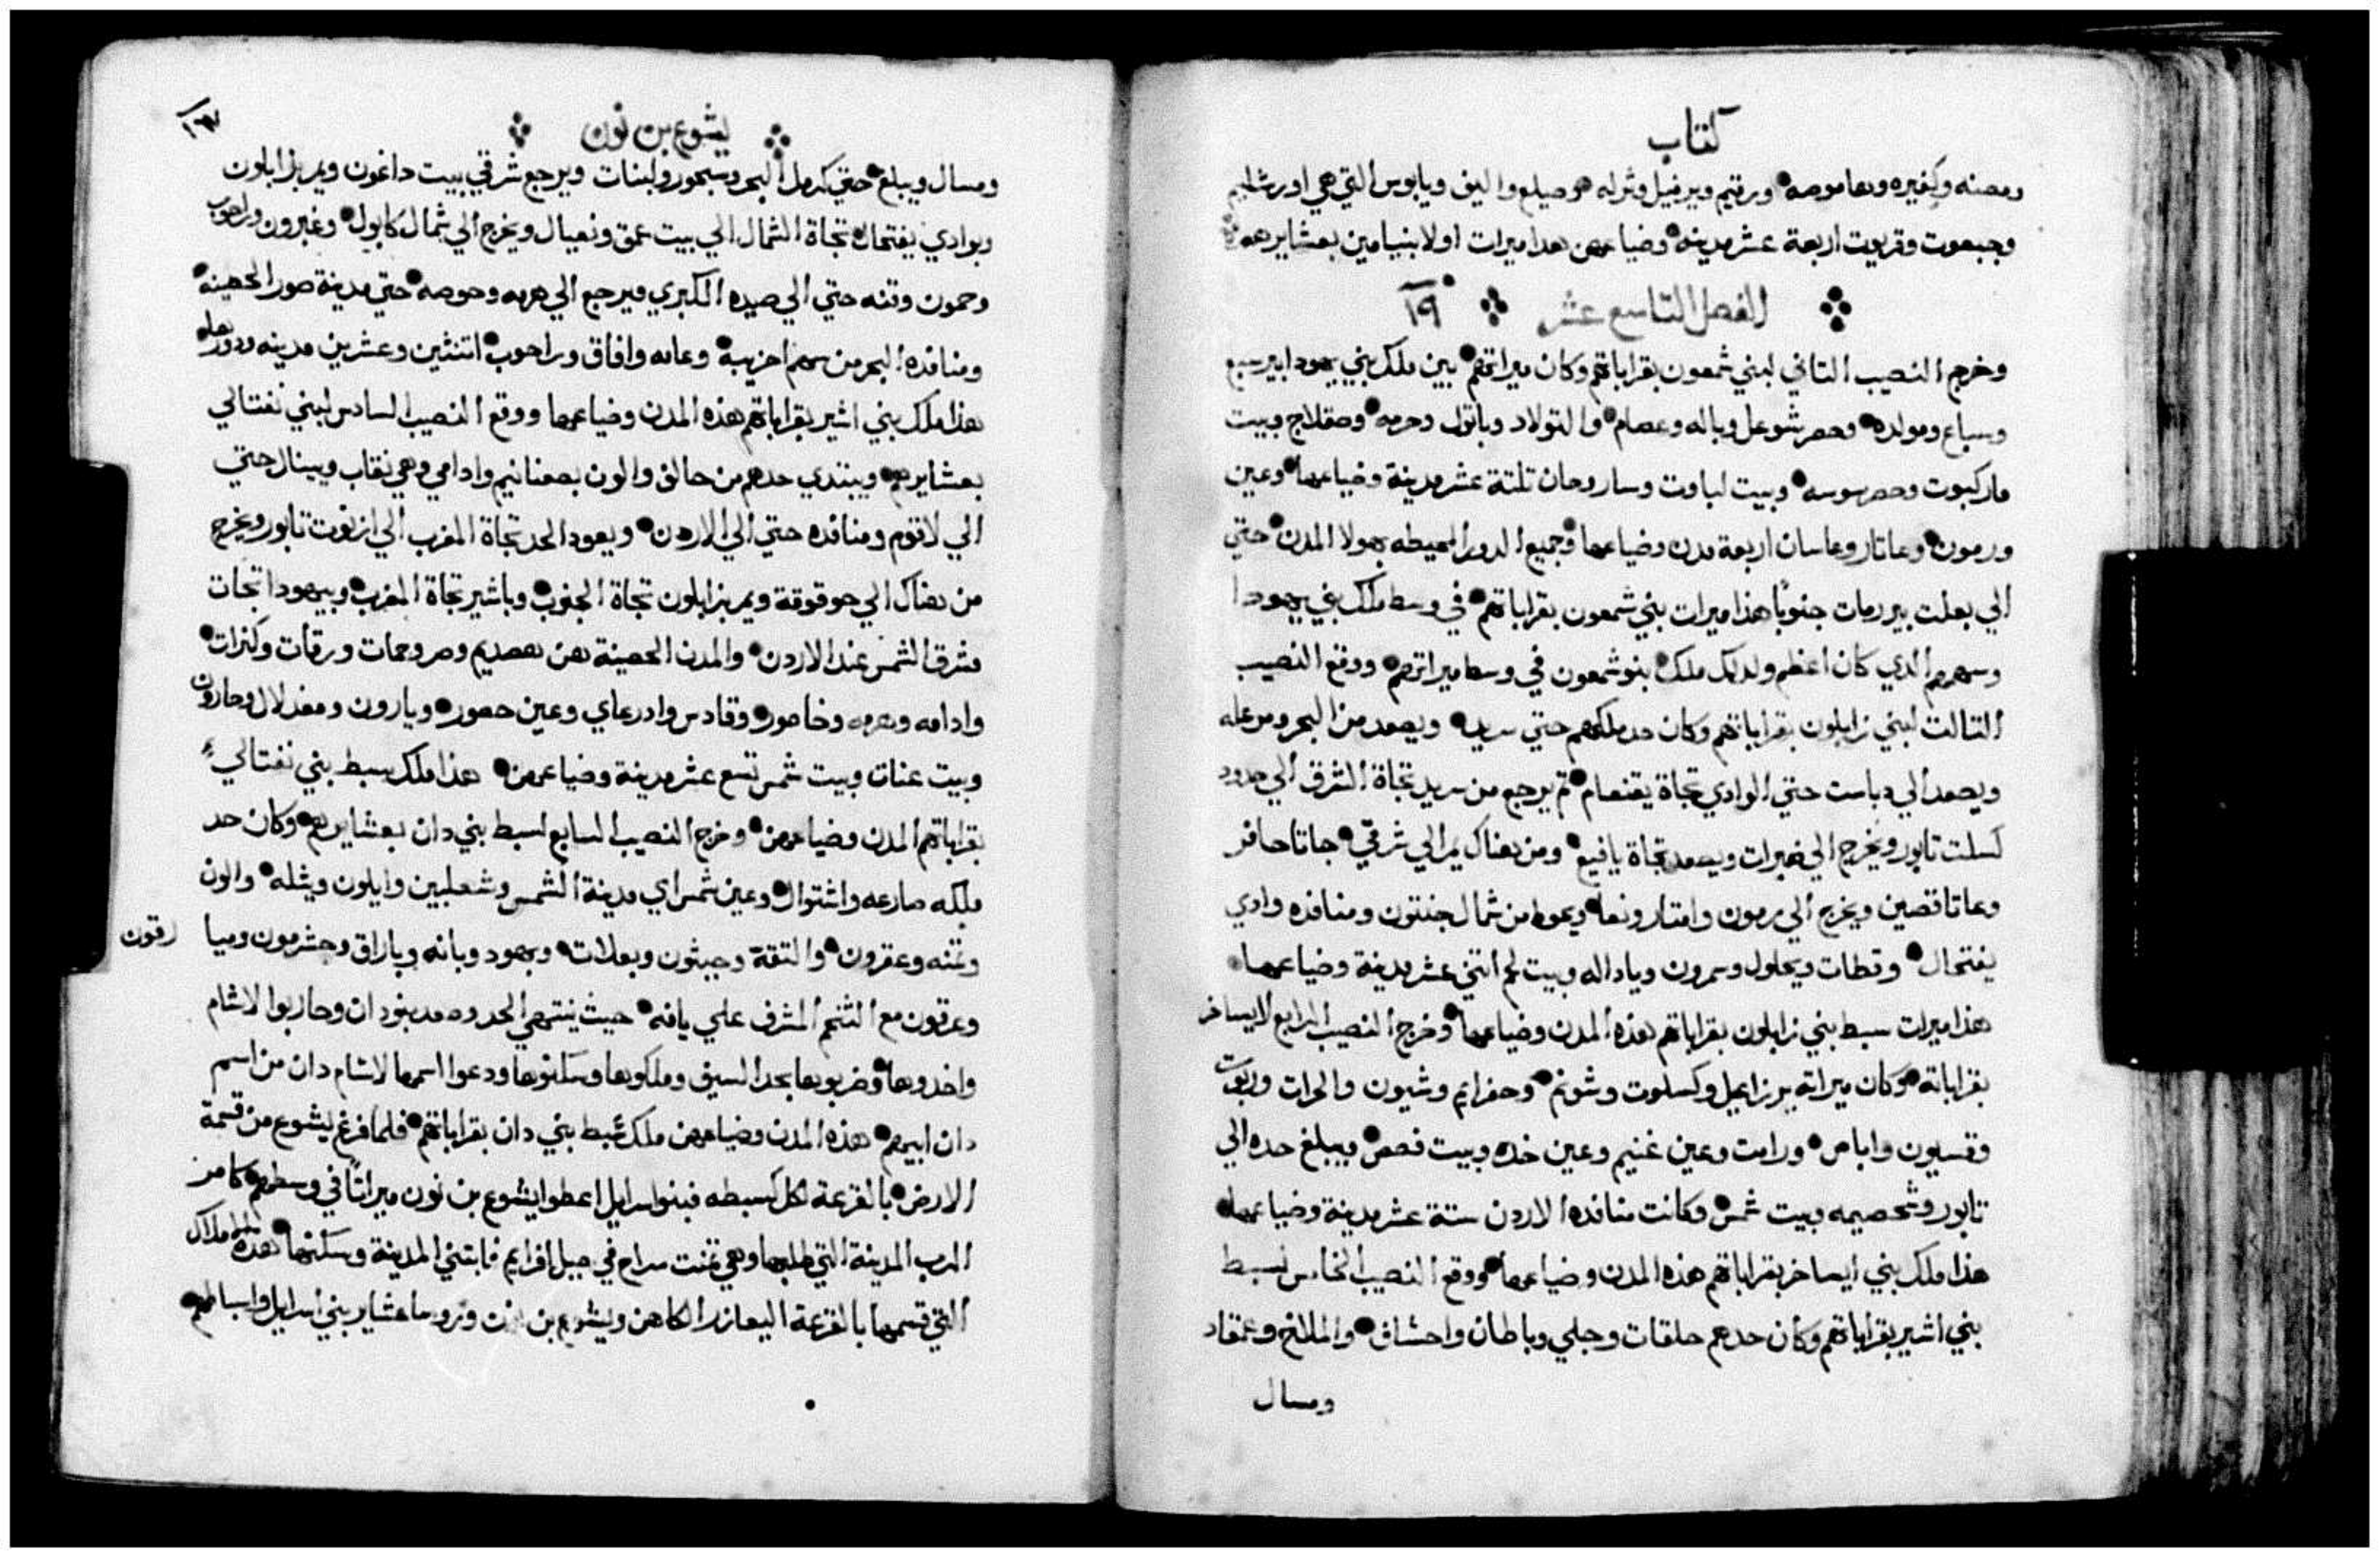 كتاب
ومصنه وكفيره وهاموصه ورتيم ويرفيل وثرله وصيلع واليف ويابوس التي هي اورشليم
وجبعوت وقريوت اربعة عشر مدينه وضياعهن هدا ميرات اولاد بنيامين بعشايرهم
الفصل التاسع عشر ١٩
وخرج النصيب التاني لبني شمعون بقراباتهم وكان ميراتهم بين ملك بني يهودا بيرسبع
وسباع ومولده وحصر شوعل وباله وعصام والتولاد وباتول وحرمه وصقلاج وبيت
ماركبوت وحصرسوسه وبيت لباوت وساروحان تلتة عشر مدينة وضياعها وعين
ورمون وعاتار وعاسان اربعة مدن وضياعها وجميع الدور المحيطه بهولا المدن حتي
الي بعلت بير رمات جنوبًا هذا ميرات بني شمعون بقراباتهم في وسط ملك بني يهودا
وسهمهم الدي كان اعظم ولدلك ملك بنو شمعون في وسط ميراتهم ووقع النصيب
التالت لبني زابلون بقراباتهم وكان حد ملكهم حتي سريد ويصعد من البحر ومرعله
ويصعد الي دباست حتي الوادي تجاة يقنعام تم يرجع من سريد تجاة الشرق الي حدود
كسلت تابور ويخرج الي ضبرات ويصعد تجاة يافيع ومن هناك يمر الي شرقي جاتا حافر
وعاتا قصين ويخرج الي رمون وامتار ونعا ويحوط من شمال جنتون ومنافده وادي
يفتحال وقطات ويحلول وسمرون ويادا له وبيت لحم اتني عشر مدينة وضياعها
هذا ميرات سبط بني زابلون بقراباتهم هذه المدن وضياعها وخرج النصيب الرابع لايساخر
بقراباته وكان ميراته يرزاعيل وكسلوت وشونم وحفرايم وشيون والحرات وربوت
وقسيون واباص ورامت وعين غنيم وعين خده وبيت فصص ويبلغ حده الي
تابور وشحصيمه وبيت شمس وكانت منافده الاردن ستة عشر مدينة وضياعها
هذا ملك بني ايساخر بقراباتهم هذه المدن وضياعها ووقع النصيب الخامس لسبط
بني اشير بقراباتهم وكان حدهم حلقات وحلي وباطان واحشاف والملاخ وعمقاد
ومسال
يشوع بن نون
ومسال ويبلغ حتي كرمل البحر وسيحور ولبنات ويرجع شرقي ببيت داغون ويمر بزابلون
وبوادي يفتحال تجاة الشمال الي بيت عمق ونعيال ويخرج الي شمال كابول وغبرون وراحوب
وحمون وقنه حتي الي صيده الكبري ويرجع الي هرمه وحوصه حتي مدينة صور الحصينه
ومنافده البحر من سهم احزيبة وعامه وافاق وراحوب اتنتين وعشرين مدينه ودورها
هذا ملك بني اشير بقراباتهم هذه المدن وضياعها ووقع النصيب السادس لبني نفتالي
بعشايرهم ويبتدي حدهم من حالف والون بصعنانيم وادامي وهي نقاب ويبنال حتي
الي لاقوم ومنافده حتي الي الاردن ويعود الحد تجاة المغرب الي ازنوت تابور ويخرج
من هناك الي حوقوقة ويمر بزابلون تجاة الجنوب وباشير تجاة المغرب وبيهودا تجات
مشرق الشمس عند الاردن والمدن الحصينة هن هصديم وصر وحمات ورقات وكنرات
وادامه وهرمه وخاصور وقادس وادرعاي وعين حصور ويارون ومغدلال وحارون
وبيت عنات وبيت شمس تسع عشر مدينة وضياعهن هذا ملك سبط بني نفتالي
بقراباتهم المدن وضياعهن وخرج النصيب السابع لسبط بني دان بعشايرهم وكان حد
ملكه صارعه واشتوال وعين شمس اي مدينة الشمس وشعلبين وايلون ويثله والون
وتمنه وعقرون والتقة وجبثون وبعلات ويهود وبانه وباراق وجثرمون وميا رقون
وعرقون مع التخم المشرف علي يافه حيث ينتهي الحدود وصعد بنو دان وحاربوا لاشام
واخدوها وضربوها بحد السيف وملكوها وسكنوها ودعوا اسمها لاشام دان من اسم
دان ابيهم هذه المدن وضياعهن ملك سبط بني دان بقراباتهم فلما فرغ يشوع من قسمة
الارض بالقرعة لكل سبطه فبنو اسرايل اعطوا يشوع بن نون ميراتًا في وسطهم كامر
الرب المدينة التي طلبها وهي تمنت سراح في جبل افرايم فابتني المدينة وسكنها هذه املاك
التي قسمها بالقرعة اليعازر الكاهن ويشوع بن نون وروسا عشاير بني اسرايل واسباطهم